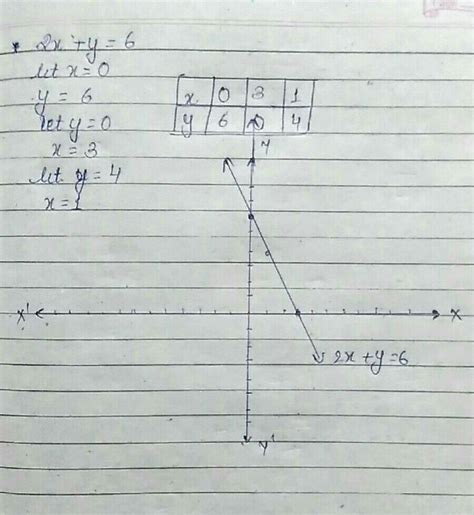 2x + y = 6
let x = 0
y = 6
let y = 0
x = 3
let y = 4
x = 1
x 0 3 1
y 6 0 4
Y
X'
X
2x + y = 6
Y'